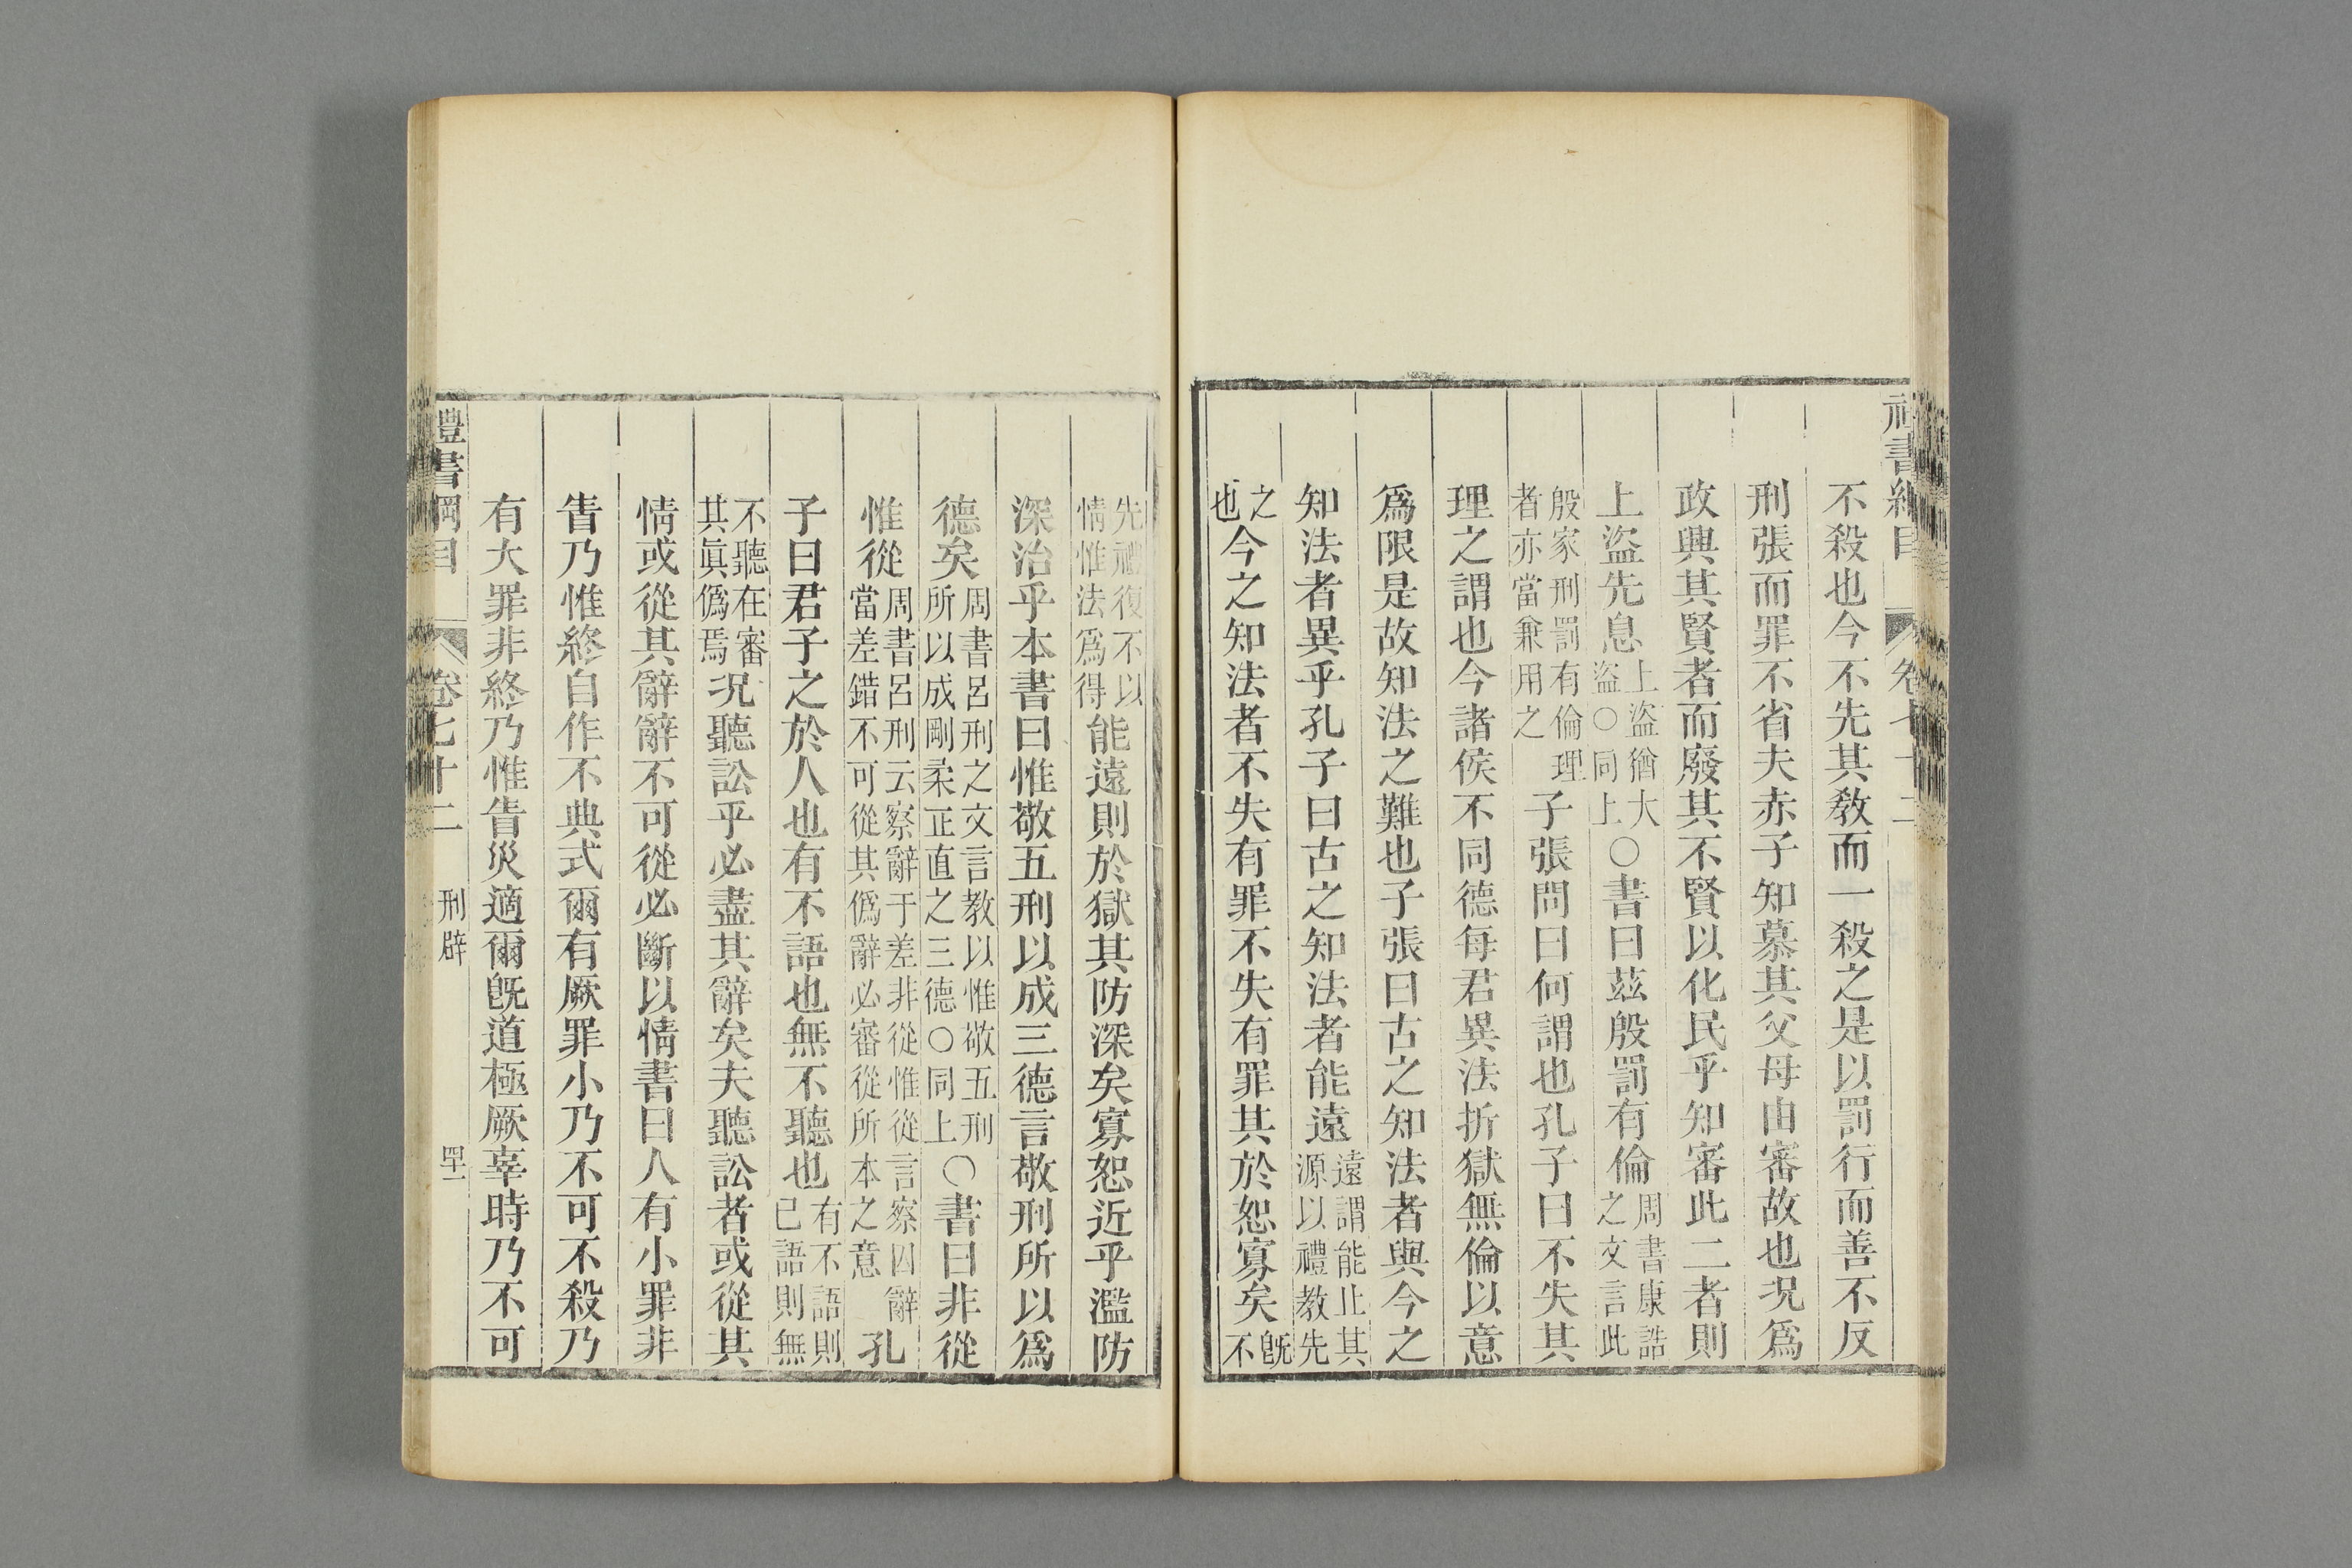 禮書綱目 卷七十二
不殺也今不先其教而一殺之是以罰行而善不反
刑張而罪不省夫赤子知慕其父母由審故也况爲
政興其賢者而廢其不賢以化民乎知審此二者則
上盜先息上盜猶大盜○同上○書曰茲殷罰有倫周書康誥之文言此
殷家刑罰有倫理者亦當兼用之子張問曰何謂也孔子曰不失其
理之謂也今諸侯不同德每君異法折獄無倫以意
爲限是故知法之難也子張曰古之知法者與今之
知法者異乎孔子曰古之知法者能遠遠謂能止其源以禮教先
之也今之知法者不失有罪不失有罪其於恕寡矣旣不
先禮復不以情惟法爲得能遠則於獄其防深矣寡恕近乎濫防
深治乎本書曰惟敬五刑以成三德言敬刑所以爲
德矣周書呂刑之文言教以惟敬五刑所以成剛柔正直之三德○同上○書曰非從
惟從周書呂刑云察辭于差非從惟從言察囚辭當差錯不可從其僞辭必審從所本之意孔
子曰君子之於人也有不語也無不聽也有不語則已語則無
不聽在審其眞僞焉况聽訟乎必盡其辭矣夫聽訟者或從其
情或從其辭辭不可從必斷以情書曰人有小罪非
眚乃惟終自作不典式爾有厥罪小乃不可不殺乃
有大罪非終乃惟眚災適爾旣道極厥辜時乃不可
禮書綱目 卷七十二 刑辟 四十一